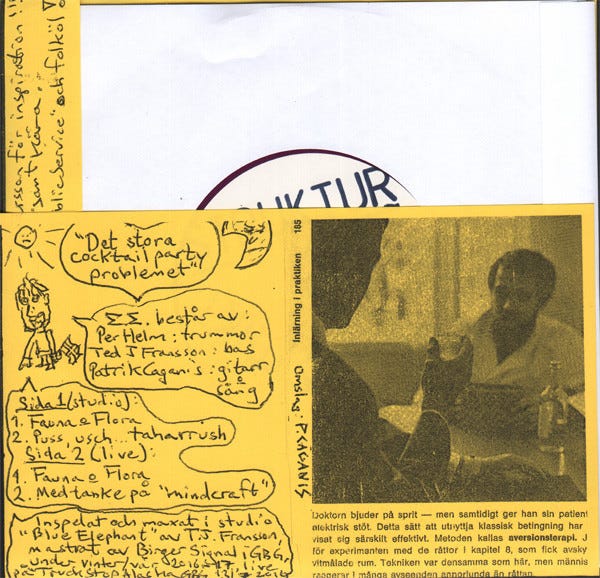 rsson för inspiration!!
"sant klara.
blicservice" och folköl
"Det stora
cocktailparty
problemet"
Σ.Σ. består av:
Per Helm: trummor
Ted J Fransson: bas
Patrik Caganis: gitarr
sång
Sida 1 (studio):
1. Fauna o Flora
2. Puss, usch... taharrush
Sida 2 (live):
1. Fauna o Flora
2. Med tanke på "mindcraft"
Inspelat och maxat i studio
"Blue Elephant" av T.J. Fransson,
mastrat av Birger Signal i GBG,
under vinter/vår
live
på Truckstop Alaska GBG
Omslag: P. CAGANIS
Inlärning i praktiken 185
Doktorn bjuder på sprit — men samtidigt ger han sin patient
elektrisk stöt. Detta sätt att utnyttja klassisk betingning har
visat sig särskilt effektivt. Metoden kallas aversionsterapi. J
för experimenten med de råttor i kapitel 8, som fick avsky
vitmålade rum. Tekniken var densamma som här, men männis
reagerar i många avseenden annorlunda än råttan.